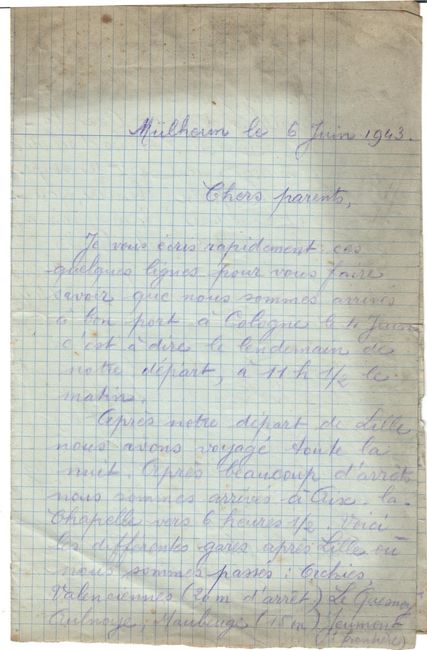 Mülheim le 6 Juin 1943.
Chers parents,
Je vous écris rapidement ces
quelques lignes pour vous faire
savoir que nous sommes arrivés
à bon port à Cologne le 4 Juin
c'est à dire le lendemain de
notre départ, à 11 h 1/2 le
matin.
Après notre départ de Lille
nous avons voyagé toute la
nuit. Après beaucoup d'arrêts
nous sommes arrivés à Aix-la-
Chapelle vers 6 heures 1/2. Voici
les différentes gares après Lille où
nous sommes passés : Orchies,
Valenciennes (20 m d'arrêt) Le Quesnoy
Aulnoye, Maubeuge (15 m) Jeumont
(frontière)